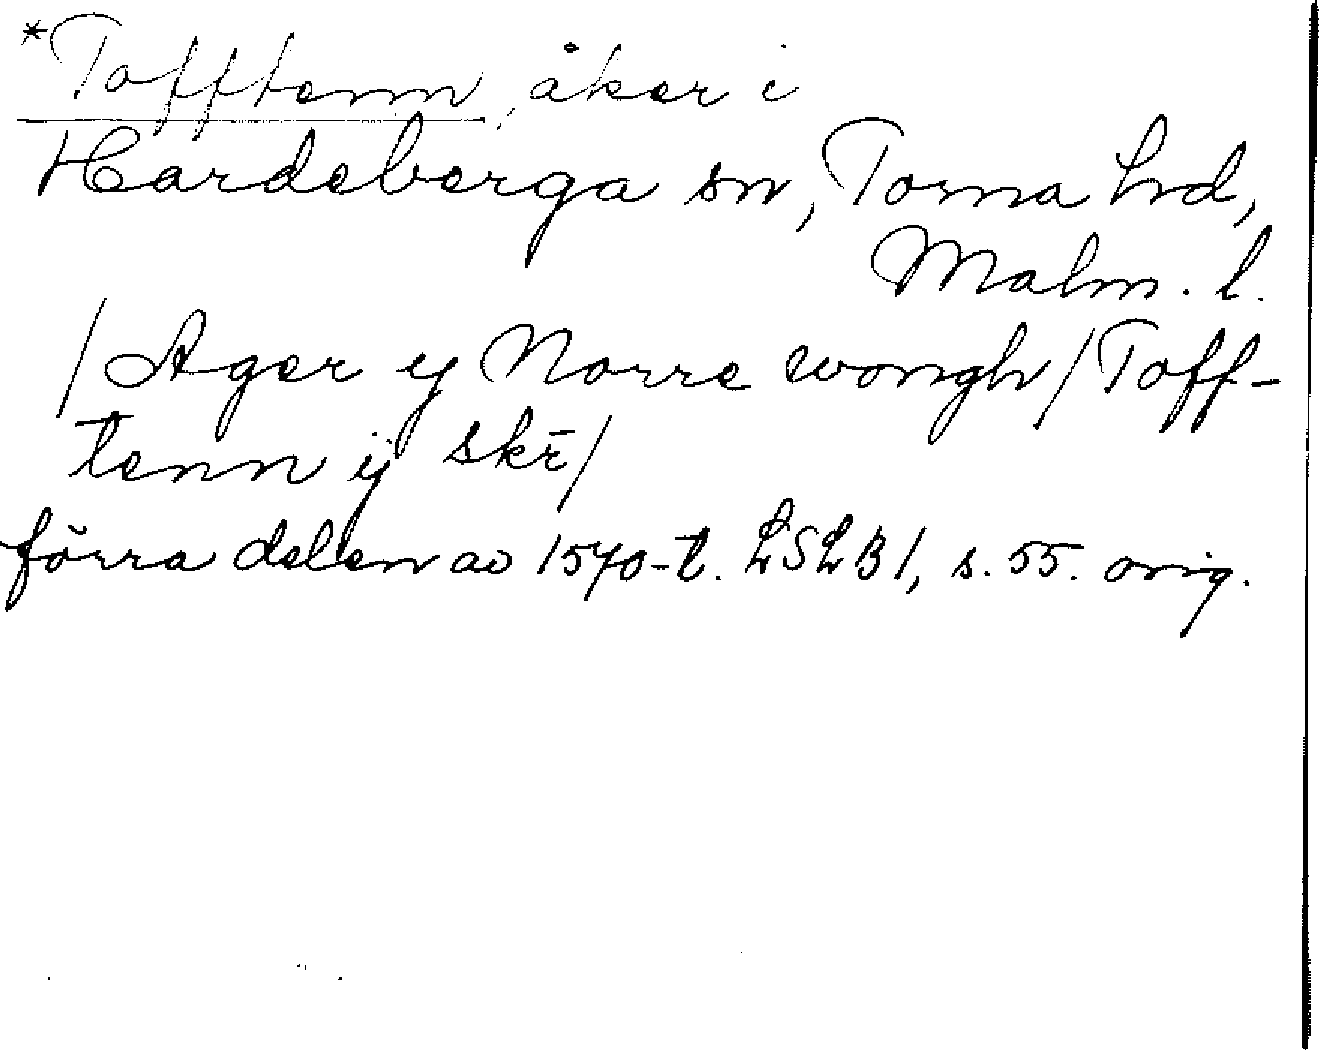 *Tofftenn, åker i
Hardeberga sn, Torna hrd,
Malm. l.
/Ager y Norre wongh/Toff-
tenn ij skē/
förra delen av 1570-t. LSLB1, s. 55. orig.